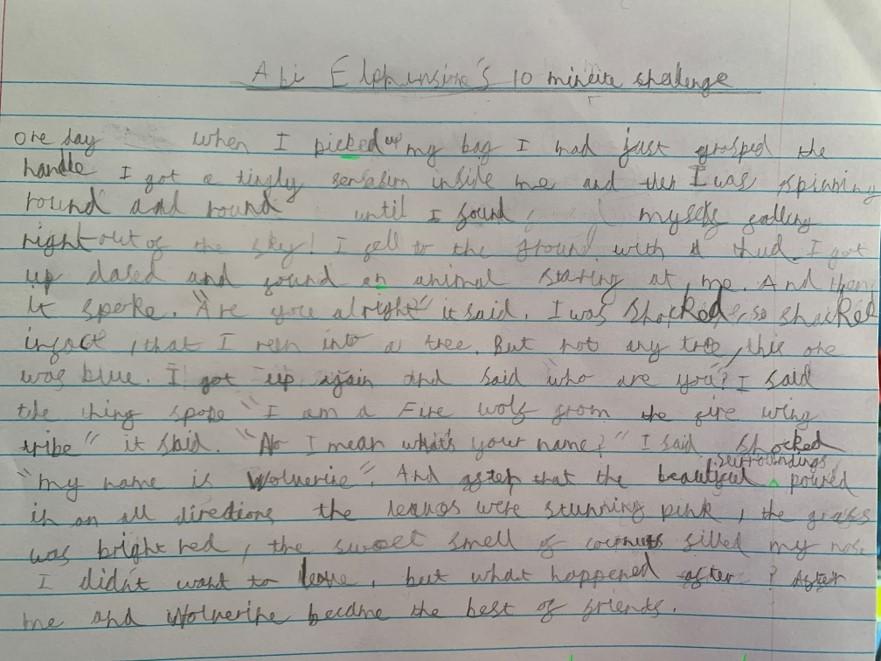 Abi Elphinsine's 10 minute challenge
one day when I picked up my bag I had just grasped the
handle I got a tingly sensation inside me and then I was spinning
round and round until I found myself falling
right out of the sky! I fell to the ground with a thud. I got
up dased and found an animal staring at me. And then
it spoke. "Are you alright" it said. I was shocked, so shocked
infact, that I ran into a tree. But not any tree, this one
was blue. I got up again and said "who are you?" I said
the thing spoke "I am a Fire wolf from the fire wing
tribe" it said. "No I mean what's your name?" I said shocked
"my name is Wolverine". And after that the beautiful surroundings poured
in on all directions the leaves were stunning pink, the grass
was bright red, the sweet smell of coconuts filled my nose
I didn't want to leave, but what happened after? After
me and Wolverine became the best of friends.